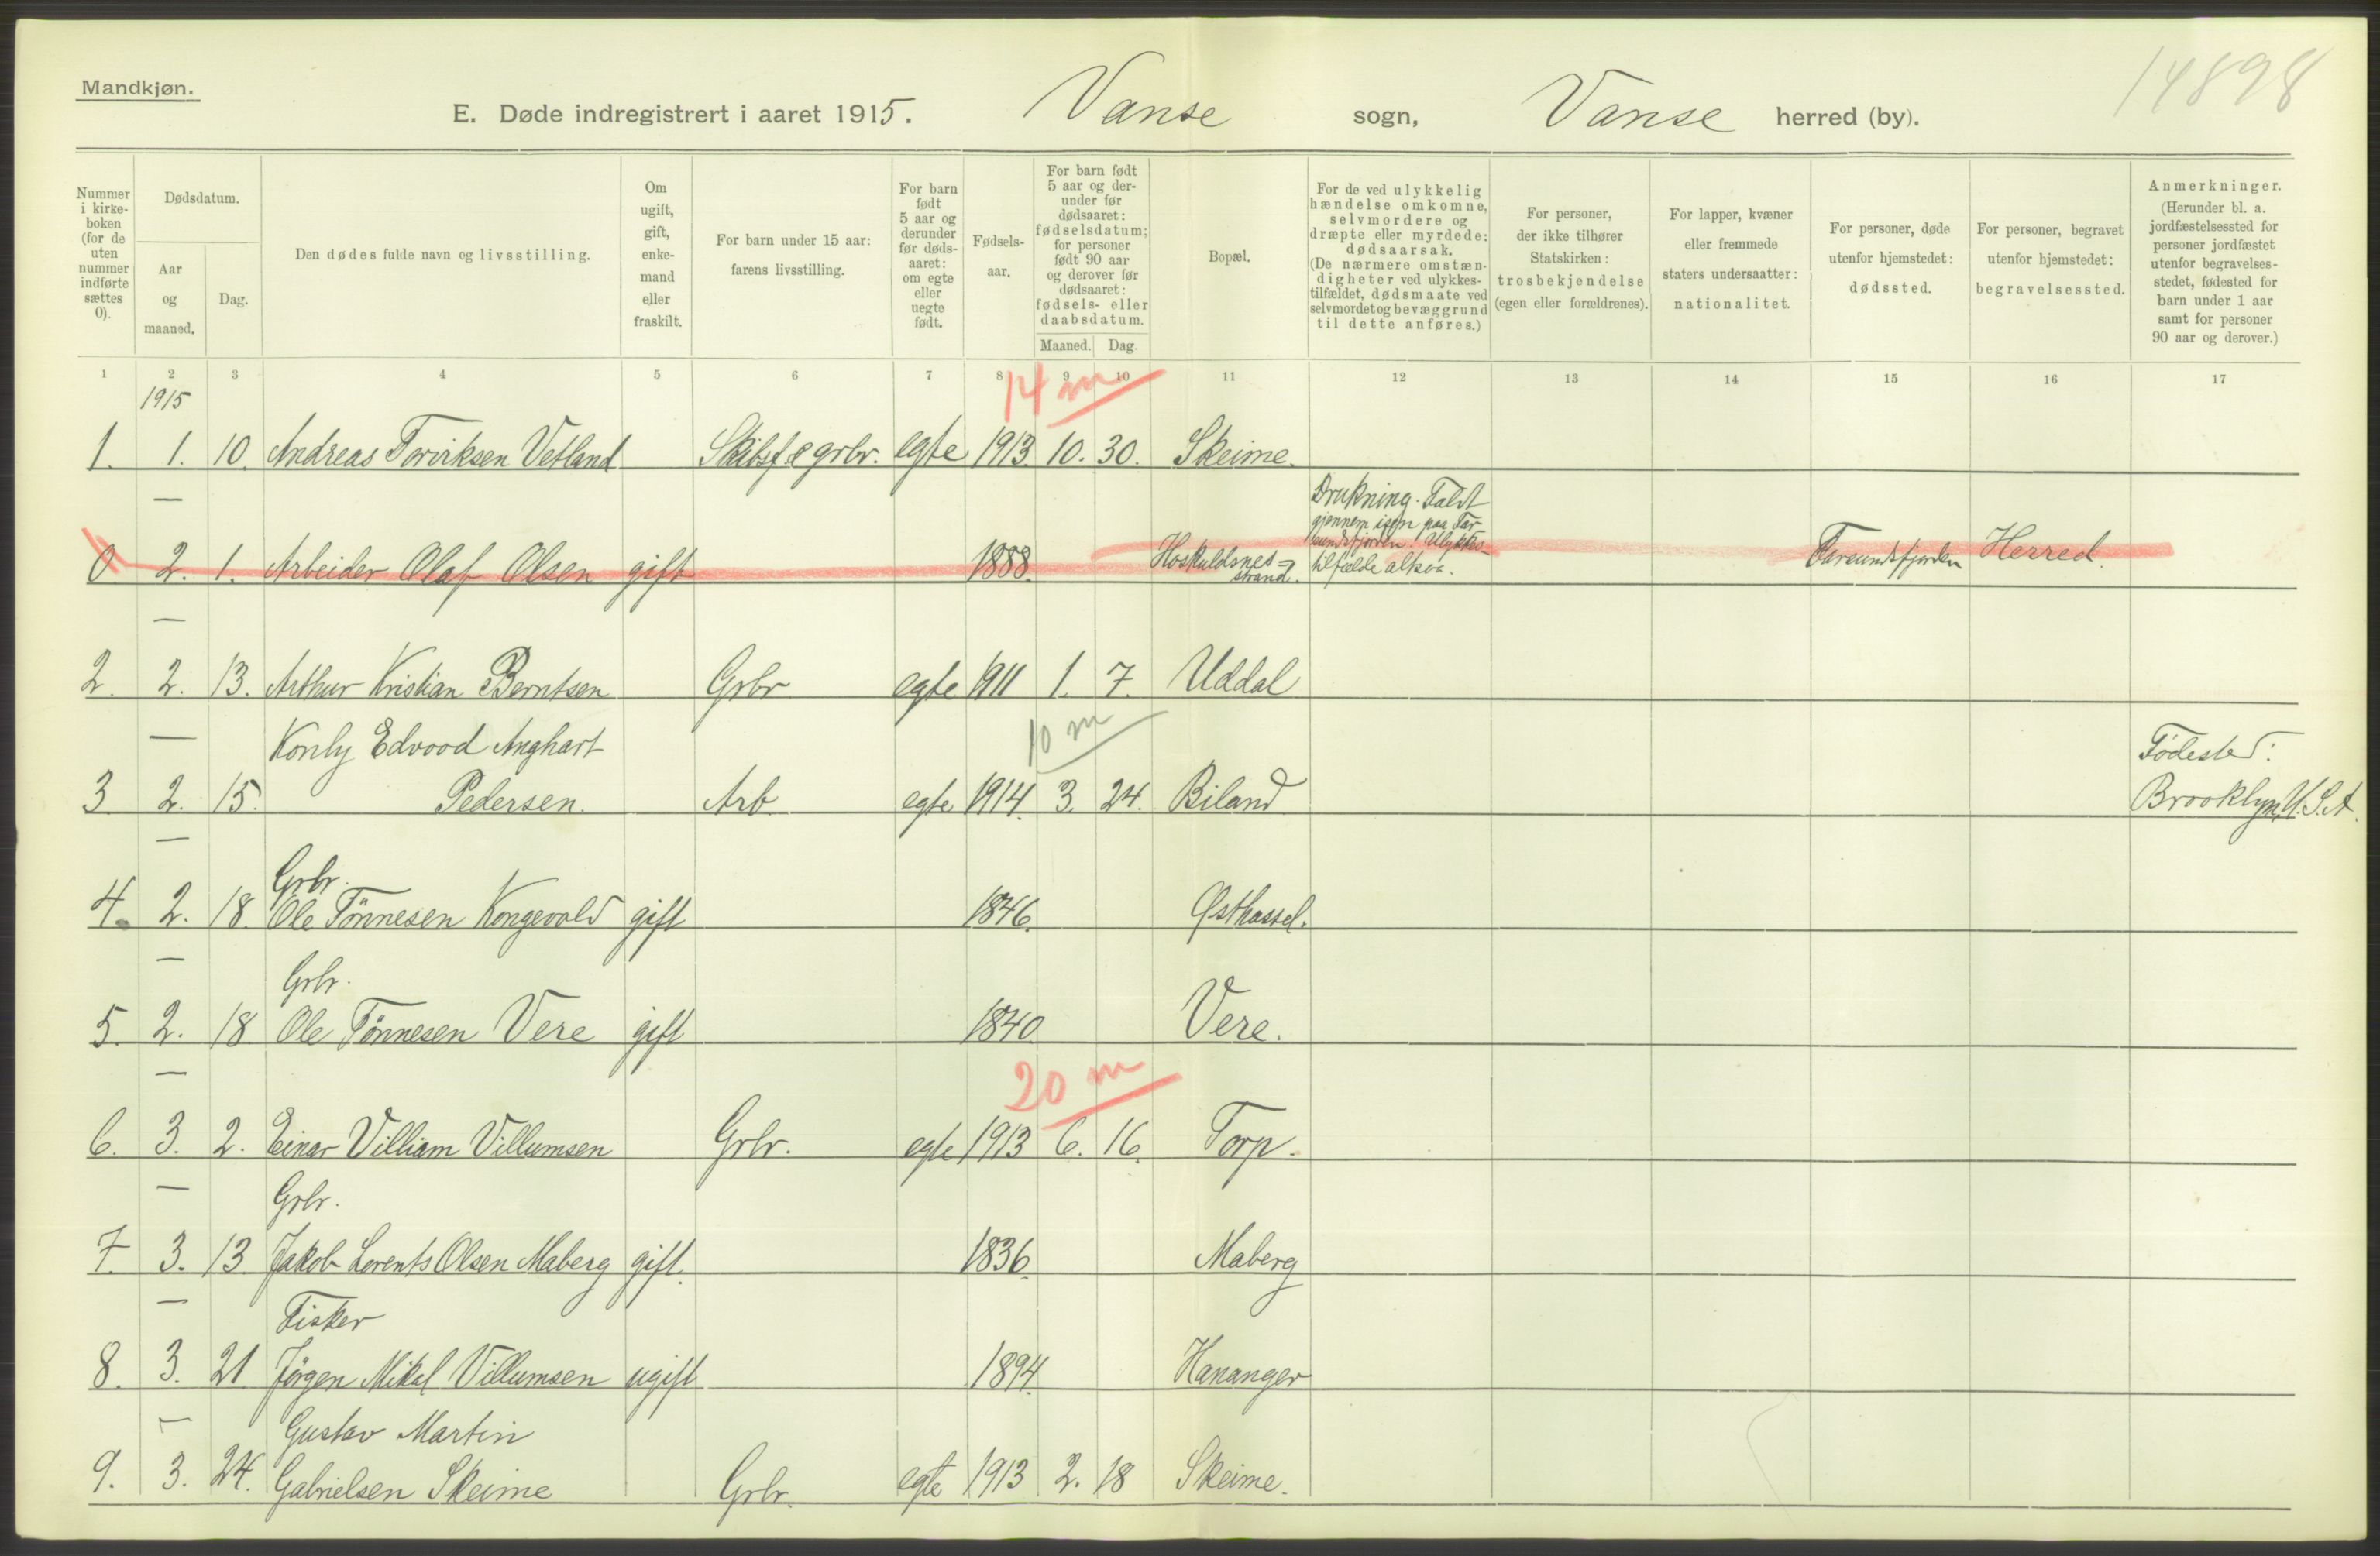 Mandkjøn.
14898
E. Døde indregistrert i aaret 1915. Vanse sogn, Vanse herred (by).
Nummer i kirke-boken (for de uten nummer indførte sættes 0).
Dødsdatum.
Aar og maaned.
Dag.
Den dødes fulde navn og livsstilling.
Om ugift, gift, enke-mand eller fraskilt.
For barn under 15 aar: farens livsstilling.
For barn født 5 aar og derunder før døds-aaret: om egte eller uegte født.
Fødsels-aar.
For barn født 5 aar og der-under før dødsaaret: fødselsdatum; for personer født 90 aar og derover før dødsaaret: fødsels- eller daabsdatum.
Maaned. Dag.
Bopæl.
For de ved ulykkelig hændelse omkomne, selvmordere og dræpte eller myrdede: dødsaarsak. (De nærmere omstæn-digheter ved ulykkes-tilfældet, dødsmaate ved selvmordet og bevæggrund til dette anføres.)
For personer, der ikke tilhører Statskirken: trosbekjendelse (egen eller forældrenes).
For lapper, kvæner eller fremmede staters undersaatter: nationalitet.
For personer, døde utenfor hjemstedet: dødssted.
For personer, begravet utenfor hjemstedet: begravelsessted.
Anmerkninger. (Herunder bl. a. jordfæstelsessted for personer jordfæstet utenfor begravelses-stedet, fødested for barn under 1 aar samt for personer 90 aar og derover.)
1 2 3 4 5 6 7 8 9 10 11 12 13 14 15 16 17
1915
14 m
1. 1. 10. Andreas Torviksen Vetland Skibsf. & grbr. egte 1913. 10. 30. Skeime.
—
Drukning. Faldt
gjennem isen paa Far-
sundsfjorden Ulykks-
0 2. 1. Arbeider Olaf Olsen gift 1888. Hoskuldsnes= tilfælde alkoa. Farsundsfjorden Herred.
strand.
—
2. 2. 13. Arthur Kristian Berntsen Grbr egte 1911 1. 7. Uddal
— Konly Edvood Anghart 10 m Fødested:
3 2. 15. Pedersen. Arb. egte 1914. 3. 24. Biland Brooklyn, U.S.A.
—
Grbr.
4. 2. 18. Ole Tönnesen Kongevold gift 1846. Østhassel.
—
Grbr.
5. 2. 18 Ole Tönnesen Vere gift 1840 Vere.
—
20 m
6. 3. 2. Einar Villiam Villumsen Grbr. egte 1913 6. 16. Torp.
—
Grbr.
7 3. 13 Jakob Lorents Olsen Maberg gift. 1836. Maberg
—
Fisker
8. 3. 21 Jörgen Mikal Villumsen ugift 1894. Hananger
—
Gustav Martin
9. 3. 24. Gabrielsen Skeime Grbr. egte 1913 2. 18 Skeime.